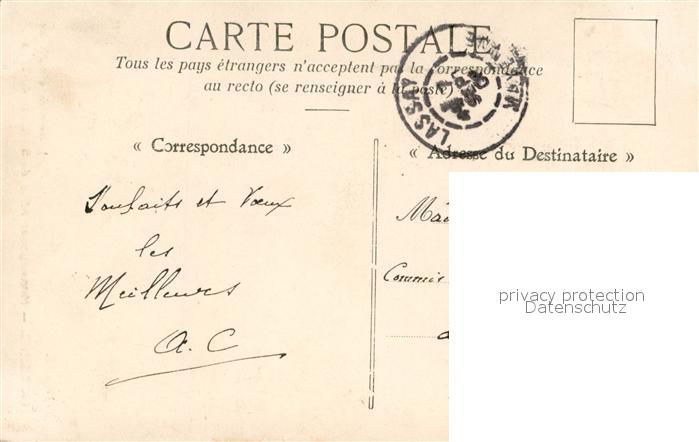 CARTE POSTALE
Tous les pays étrangers n'acceptent pas la correspondance
au recto (se renseigner à la poste)
LASSAY
MAYENNE
« Correspondance »
Souhaits et Vœux
les
Meilleurs
A. C
« Adresse du Destinataire »
Mad
Commis
a
privacy protection
Datenschutz